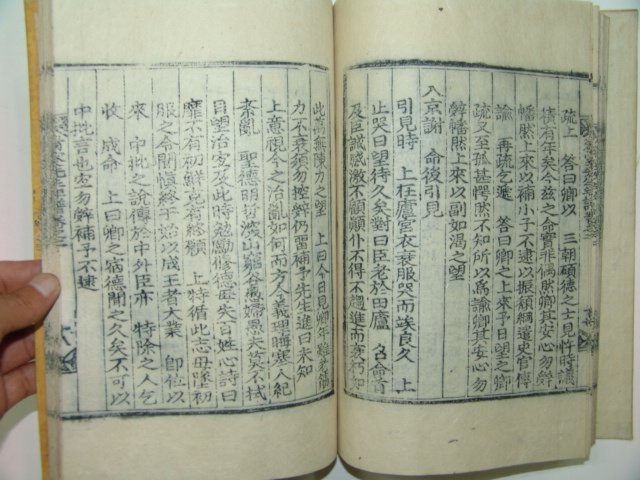 疏上 答曰卿以 三朝碩德之士見忤時議
積有年矣今玆之命實非偶然卿其安心勿辭
幡然上來以補小子不逮以振頹綱遣史官傳
諭 再疏乞遞 答曰卿之上來予日望之卿
疏又至孤甚愕然不知所以爲諭卿其安心勿
辭幡然上來以副如渴之望
入京謝 命後引見
引見時 上在廬宮衣衰服哭而竢良久 上
止哭曰望待久矣對曰臣老於田廬 召命首
及臣誠感激不顧顚仆不得不趨進而衰朽如
此萬無陳力之望 上曰今日見卿年
力不衰須勿控辭仍留補予先生進曰未知
上意視今之治亂如何而方人義理晦塞人紀
紊亂 聖德明哲深山窮谷愚婦愚夫莫不拭
目望治宜及此時勉勵修德臣失百姓心詩曰
靡不有初鮮克有終願 上特循此志毋墜初
服之命閒愼終于始以成王者大業 卽位以
來 中批之說傳於中外臣亦 特除之人乞
收 成命 上曰卿之宿德聞之久矣不可以
中批言也宜勿辭補予不逮